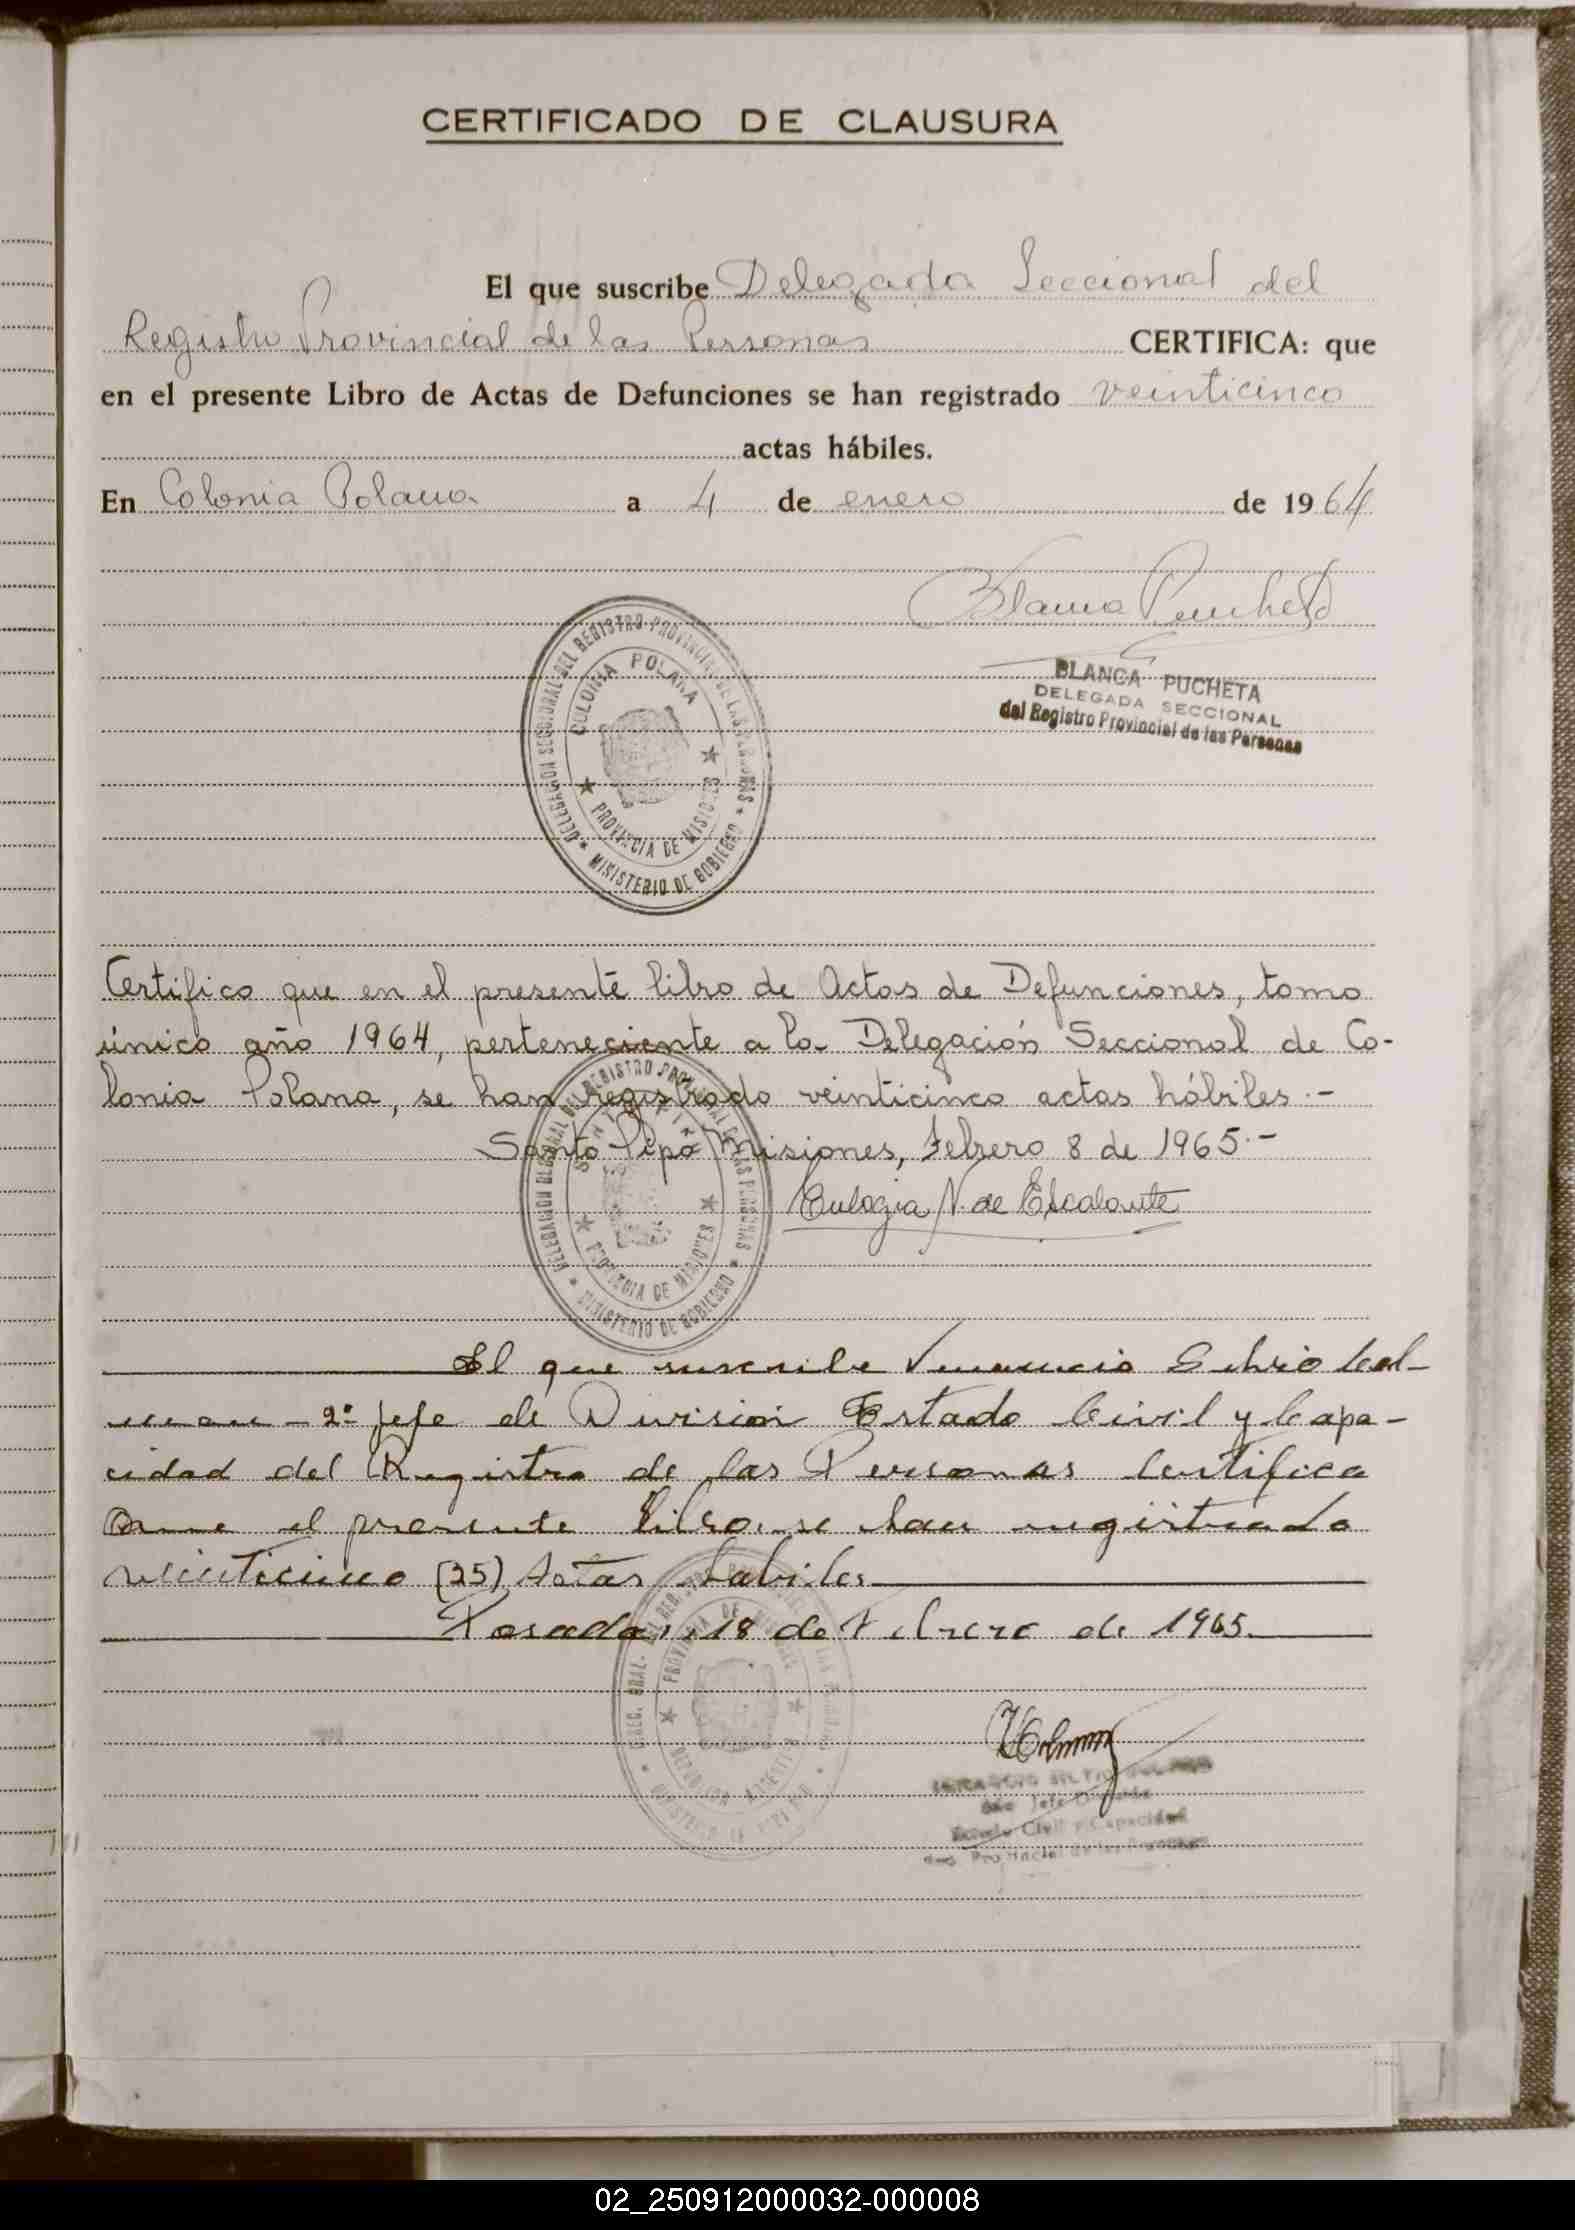 CERTIFICADO DE CLAUSURA
El que suscribe Delegada Seccional del
Registro Provincial de las Personas CERTIFICA: que
en el presente Libro de Actas de Defunciones se han registrado veinticinco
actas hábiles.
En Colonia Polana a 4 de enero de 1964
Blanca Pucheta
BLANCA PUCHETA
DELEGADA SECCIONAL
del Registro Provincial de las Personas
DELEGACION SECCIONAL DEL REGISTRO PROVINCIAL DE LAS PERSONAS
COLONIA POLANA
PROVINCIA DE MISIONES
MINISTERIO DE GOBIERNO
Certifico que en el presente libro de Actas de Defunciones, tomo
único año 1964, perteneciente a la Delegación Seccional de Co-
lonia Polana, se han registrado veinticinco actas hábiles.-
Santo Pipó Misiones, Febrero 8 de 1965.-
Eulogia N. de Escalante
PROVINCIA DE MISIONES
MINISTERIO DE GOBIERNO
El que suscribe Venancio Silvio Col-
man - 2º Jefe de Division Estado Civil y Capa-
cidad del Registro de las Personas Certifica
que el presente libro, se han registrado
veinticinco (25) Actas habiles
Posadas, 18 de Febrero de 1965.
Estado Civil y Capacidad
02_250912000032-000008